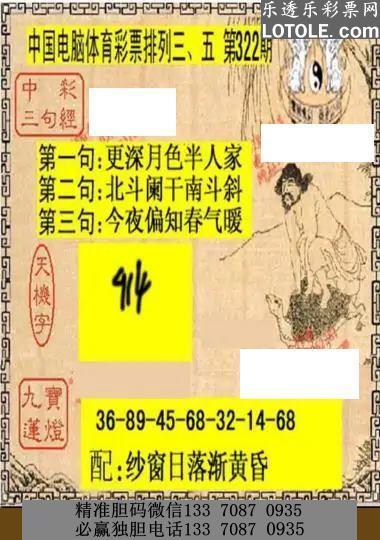 乐透乐彩票网
LOTOLE.com
中国电脑体育彩票排列三、五 第322期
中彩
三句經
第一句:更深月色半人家
第二句:北斗阑干南斗斜
第三句:今夜偏知春气暖
天機字
914
九寶
蓮燈
36-89-45-68-32-14-68
配:纱窗日落渐黄昏
精准胆码微信133 7087 0935
必赢独胆电话133 7087 0935